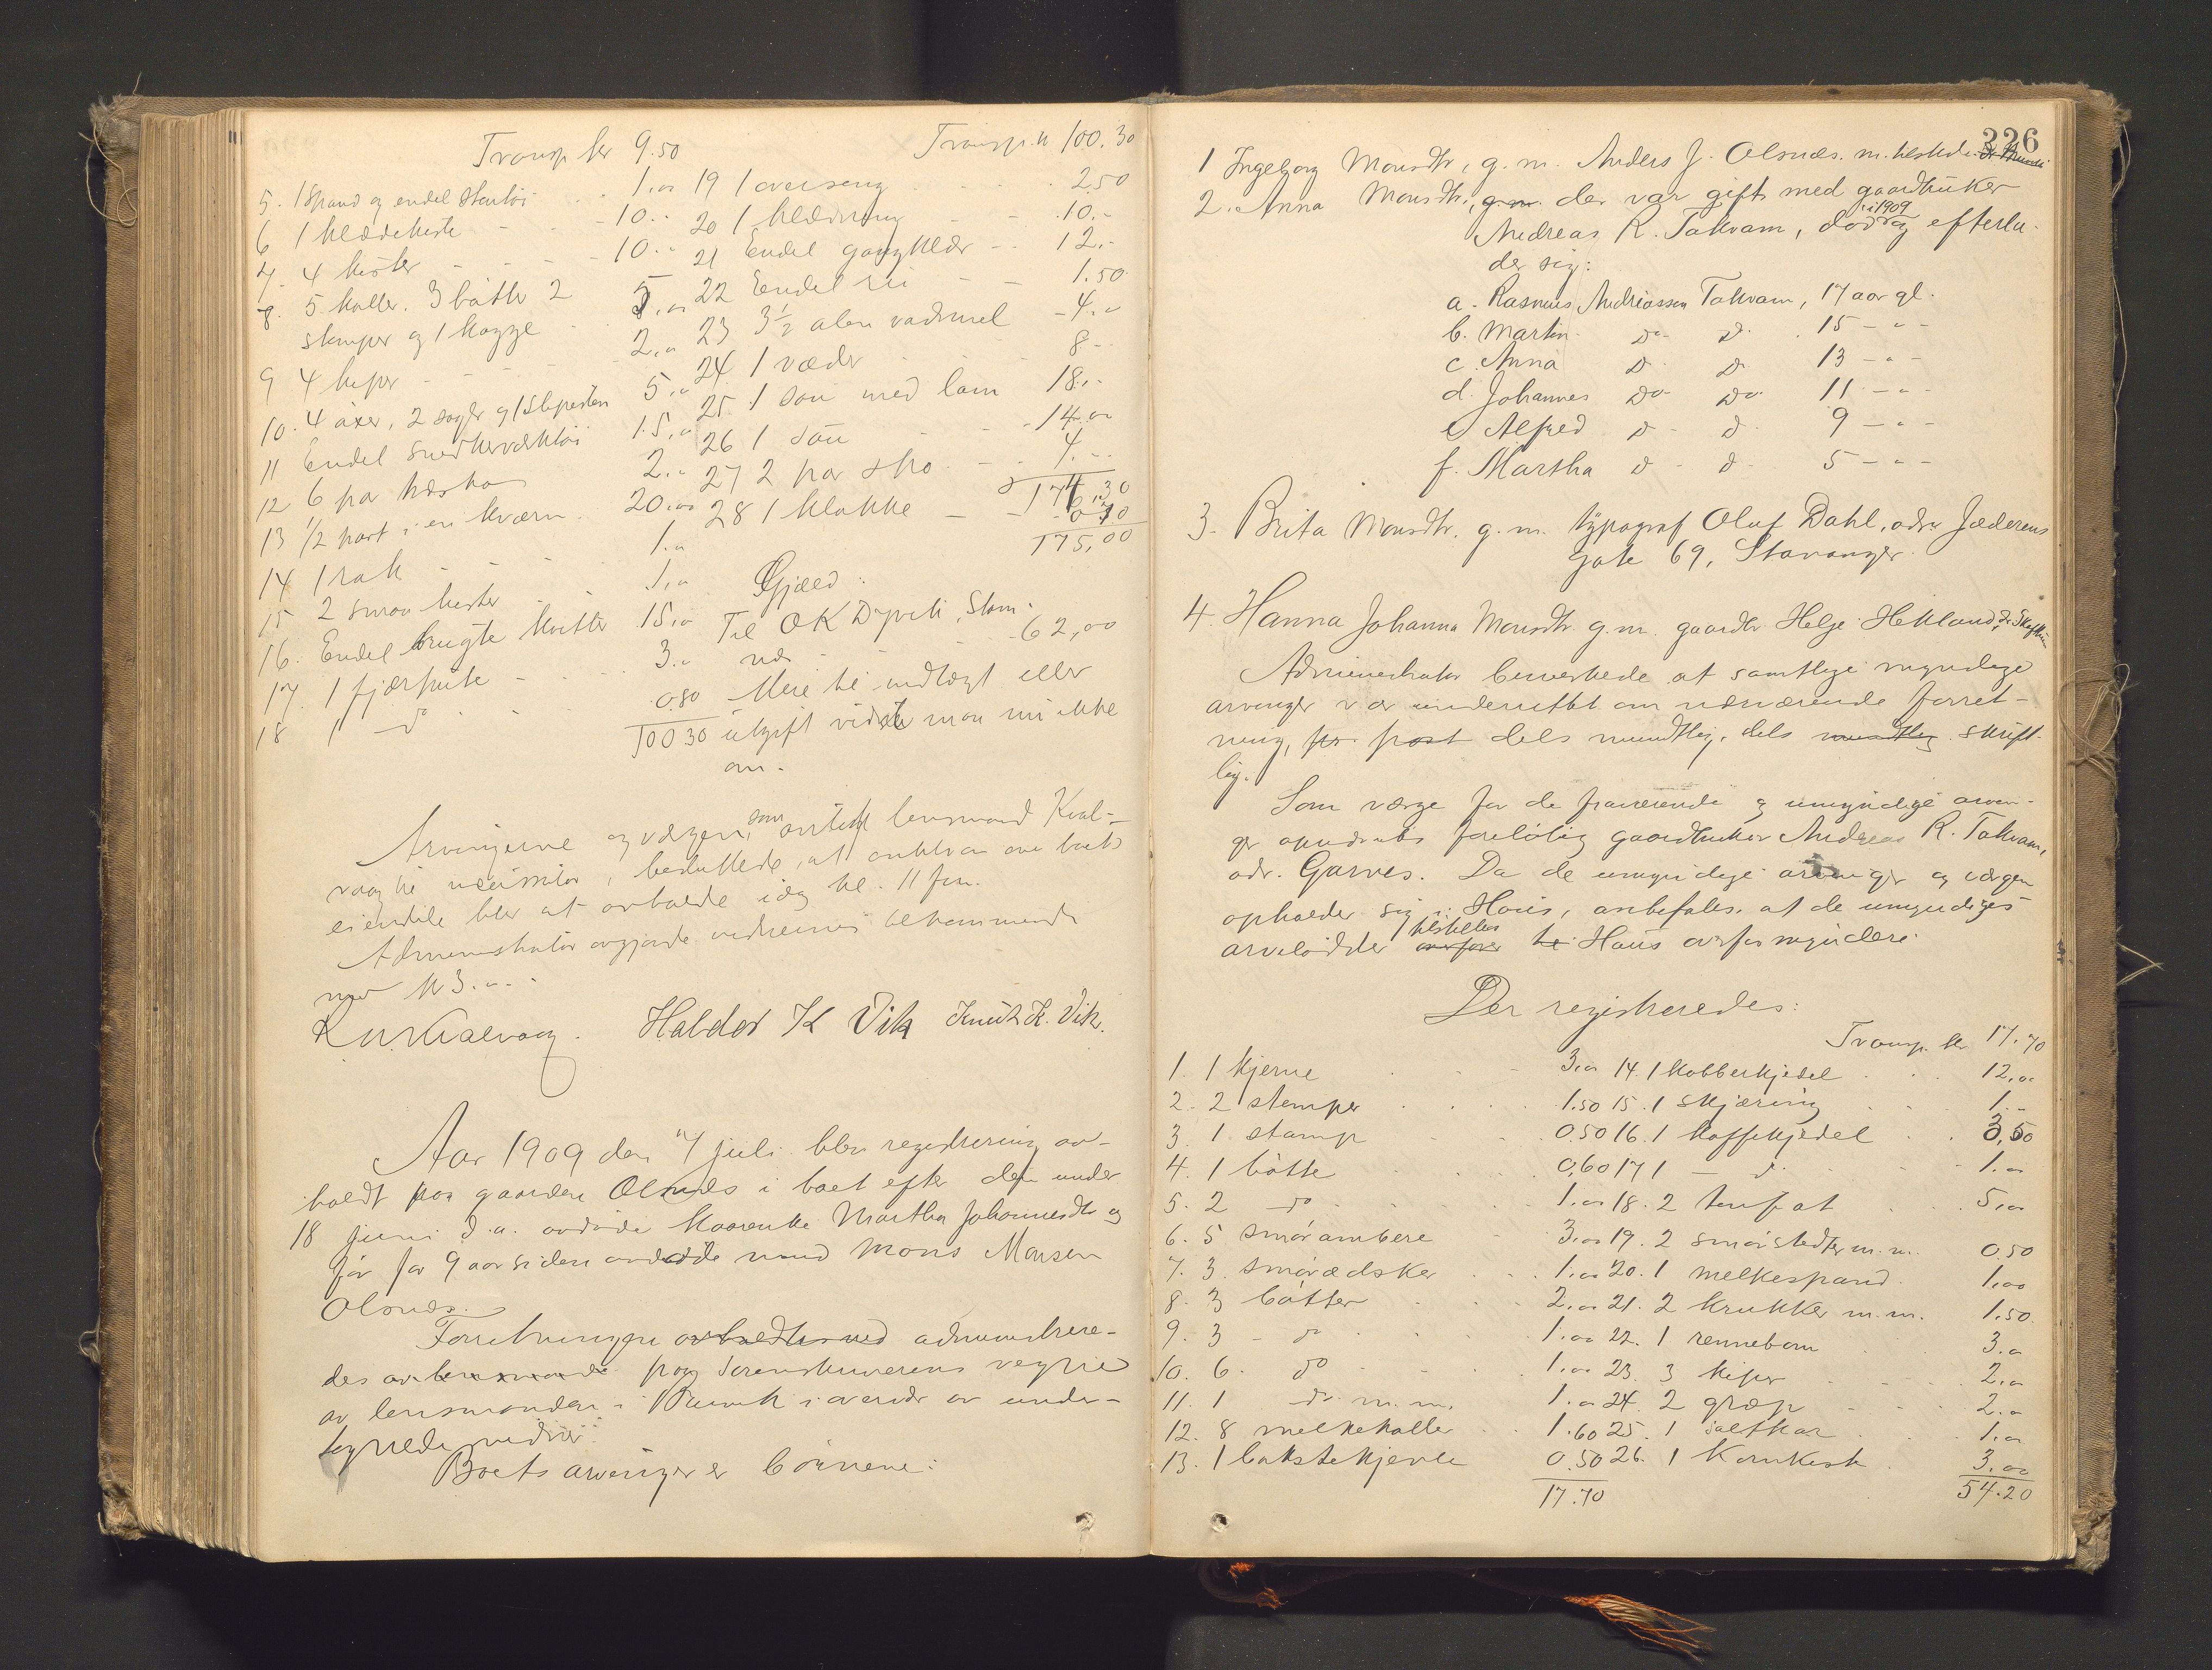 Transp. kr 9.50
5. 1 spand og endel stentøi 1.00
6 1 klædekiste 10.-
7. 4 kister 10.-
8. 5 koller. 3 bøtter 2
stamper og 1 kagge 5.00
9 4 kiper 2.00
10. 4 øxer, 2 sager og 1 slipesten 5.00
11 Endel snedkerværktøi 15.00
12 6 par hæsko 2.-
13 1/2 part i en kværn 20.00
14 1 rok 1.00
15 2 smaa kister 1.00
16. Endel brugte kister 15.00
17. 1 fjærpute 3.-
18 1 do 0.80
100 30
Transp. kr 100.30
19 1 overseng 2.50
20 1 klædning 10.-
21 Endel gangklær 12.-
22 Endel 1.50
23 3 1/2 alen vadmel 4.00
24 1 væder 8-
25 1 sau med lam 18.-
26 1 sau 14.00
27 2 par sko 4.-
174.30
28 1 klokke 0.70
175,00
Gjæld:
Til O K Dyvik, Stam-
næs 62,00
Mere til indtægt eller
utgift vidste man nu ikke
om.
Arvingerne og værgen, som antok lensmand Kval-
vaag til, besluttede, at auktion over boets
eiendele blev at avholde idag kl. 11 fm.
Administrator avgjorde vidnernes tilkommende
med kr 3.00.
R. N. Kvalvaag. Haldor K Vik Knut K. Vik.
Aar 1909 den 7 juli blev registrering av-
holdt paa gaarden Olsnæs i boet efter den under
18 juni d. a. avdøde kaarenke Martha Johannesdtr og
før for 9 aar siden avdøde mand Mons Monsen
Olsnæs.
Forretningen avholdtes ved administrere-
des av lensmanden paa Sorenskriverens vegne
av lensmanden i Bruvik i overvær av under-
tegnede vidner.
Boets arvinger er børnene:
326
1 Ingeborg Monsdtr, g. m. Anders J. Olsnæs. m. tilstede
2. Anna Monsdtr, g. m. der var gift med gaardbruker
Andreas R. Takvam, død i 1909 og efterla-
der sig:
a. Rasmus Andreassen Takvam, 17 aar gl.
b. Martin do do 15 - " -
c. Anna do do 13 - " -
d. Johannes do do 11 - " -
e Alfred do do 9 - " -
f. Martha do do 5 - " -
3. Brita Monsdtr. g. m. typograf Oluf Dahl, adr. Jæderens
gate 69, Stavanger.
4. Hanna Johanna Monsdtr g. m. gaardbr. Helge Hekland,
Administrator bemerkede at samtlige myndige
arvinger var underrettet om nærværende forret-
ning, pr. post dels mundtlig, dels mundtlig skrift-
lig.
Som værge for de fraværende og umyndige arvin-
ger opnævntes foreløbig gaardbruker Andreas R. Takvam,
adr. Garnes. Da de umyndige arvinger og værgen
opholder sig i Haus, anbefales at de umyndiges
arvelodder overføres tilstilles til Haus overformynderi.
Der registreredes:
1. 1 kjerne 3.00
2. 2 stamper 1.50
3. 1 stamp 0.50
4. 1 bøtte 0.60
5. 2 do 1.00
6. 5 smørambere 3.00
7. 3 smørædsker 1.00
8. 3 bøtter 2.00
9. 3 - do 1.00
10. 6 do 1.00
11. 1 do m. m. 1.00
12. 8 melkekoller 1.60
13. 1 bakstekjevle 0.50
17.70
Transp. kr 17.70
14. 1 kobberkjedel 12.00
15. 1 skjæring 1.-
16. 1 kaffekjedel 3,50
17 1 - do 1.00
18. 2 tenfat 5.00
19. 2 smørstedter m. m. 0.50
20. 1 melkespand 1.00
21. 2 krukker m. m. 1.50
22. 1 rennebom 3.00
23. 3 kiper 2.00
24. 2 græp 2.00
25. 1 saltkar 1.00
26. 1 kornkiste 3.00
54.20